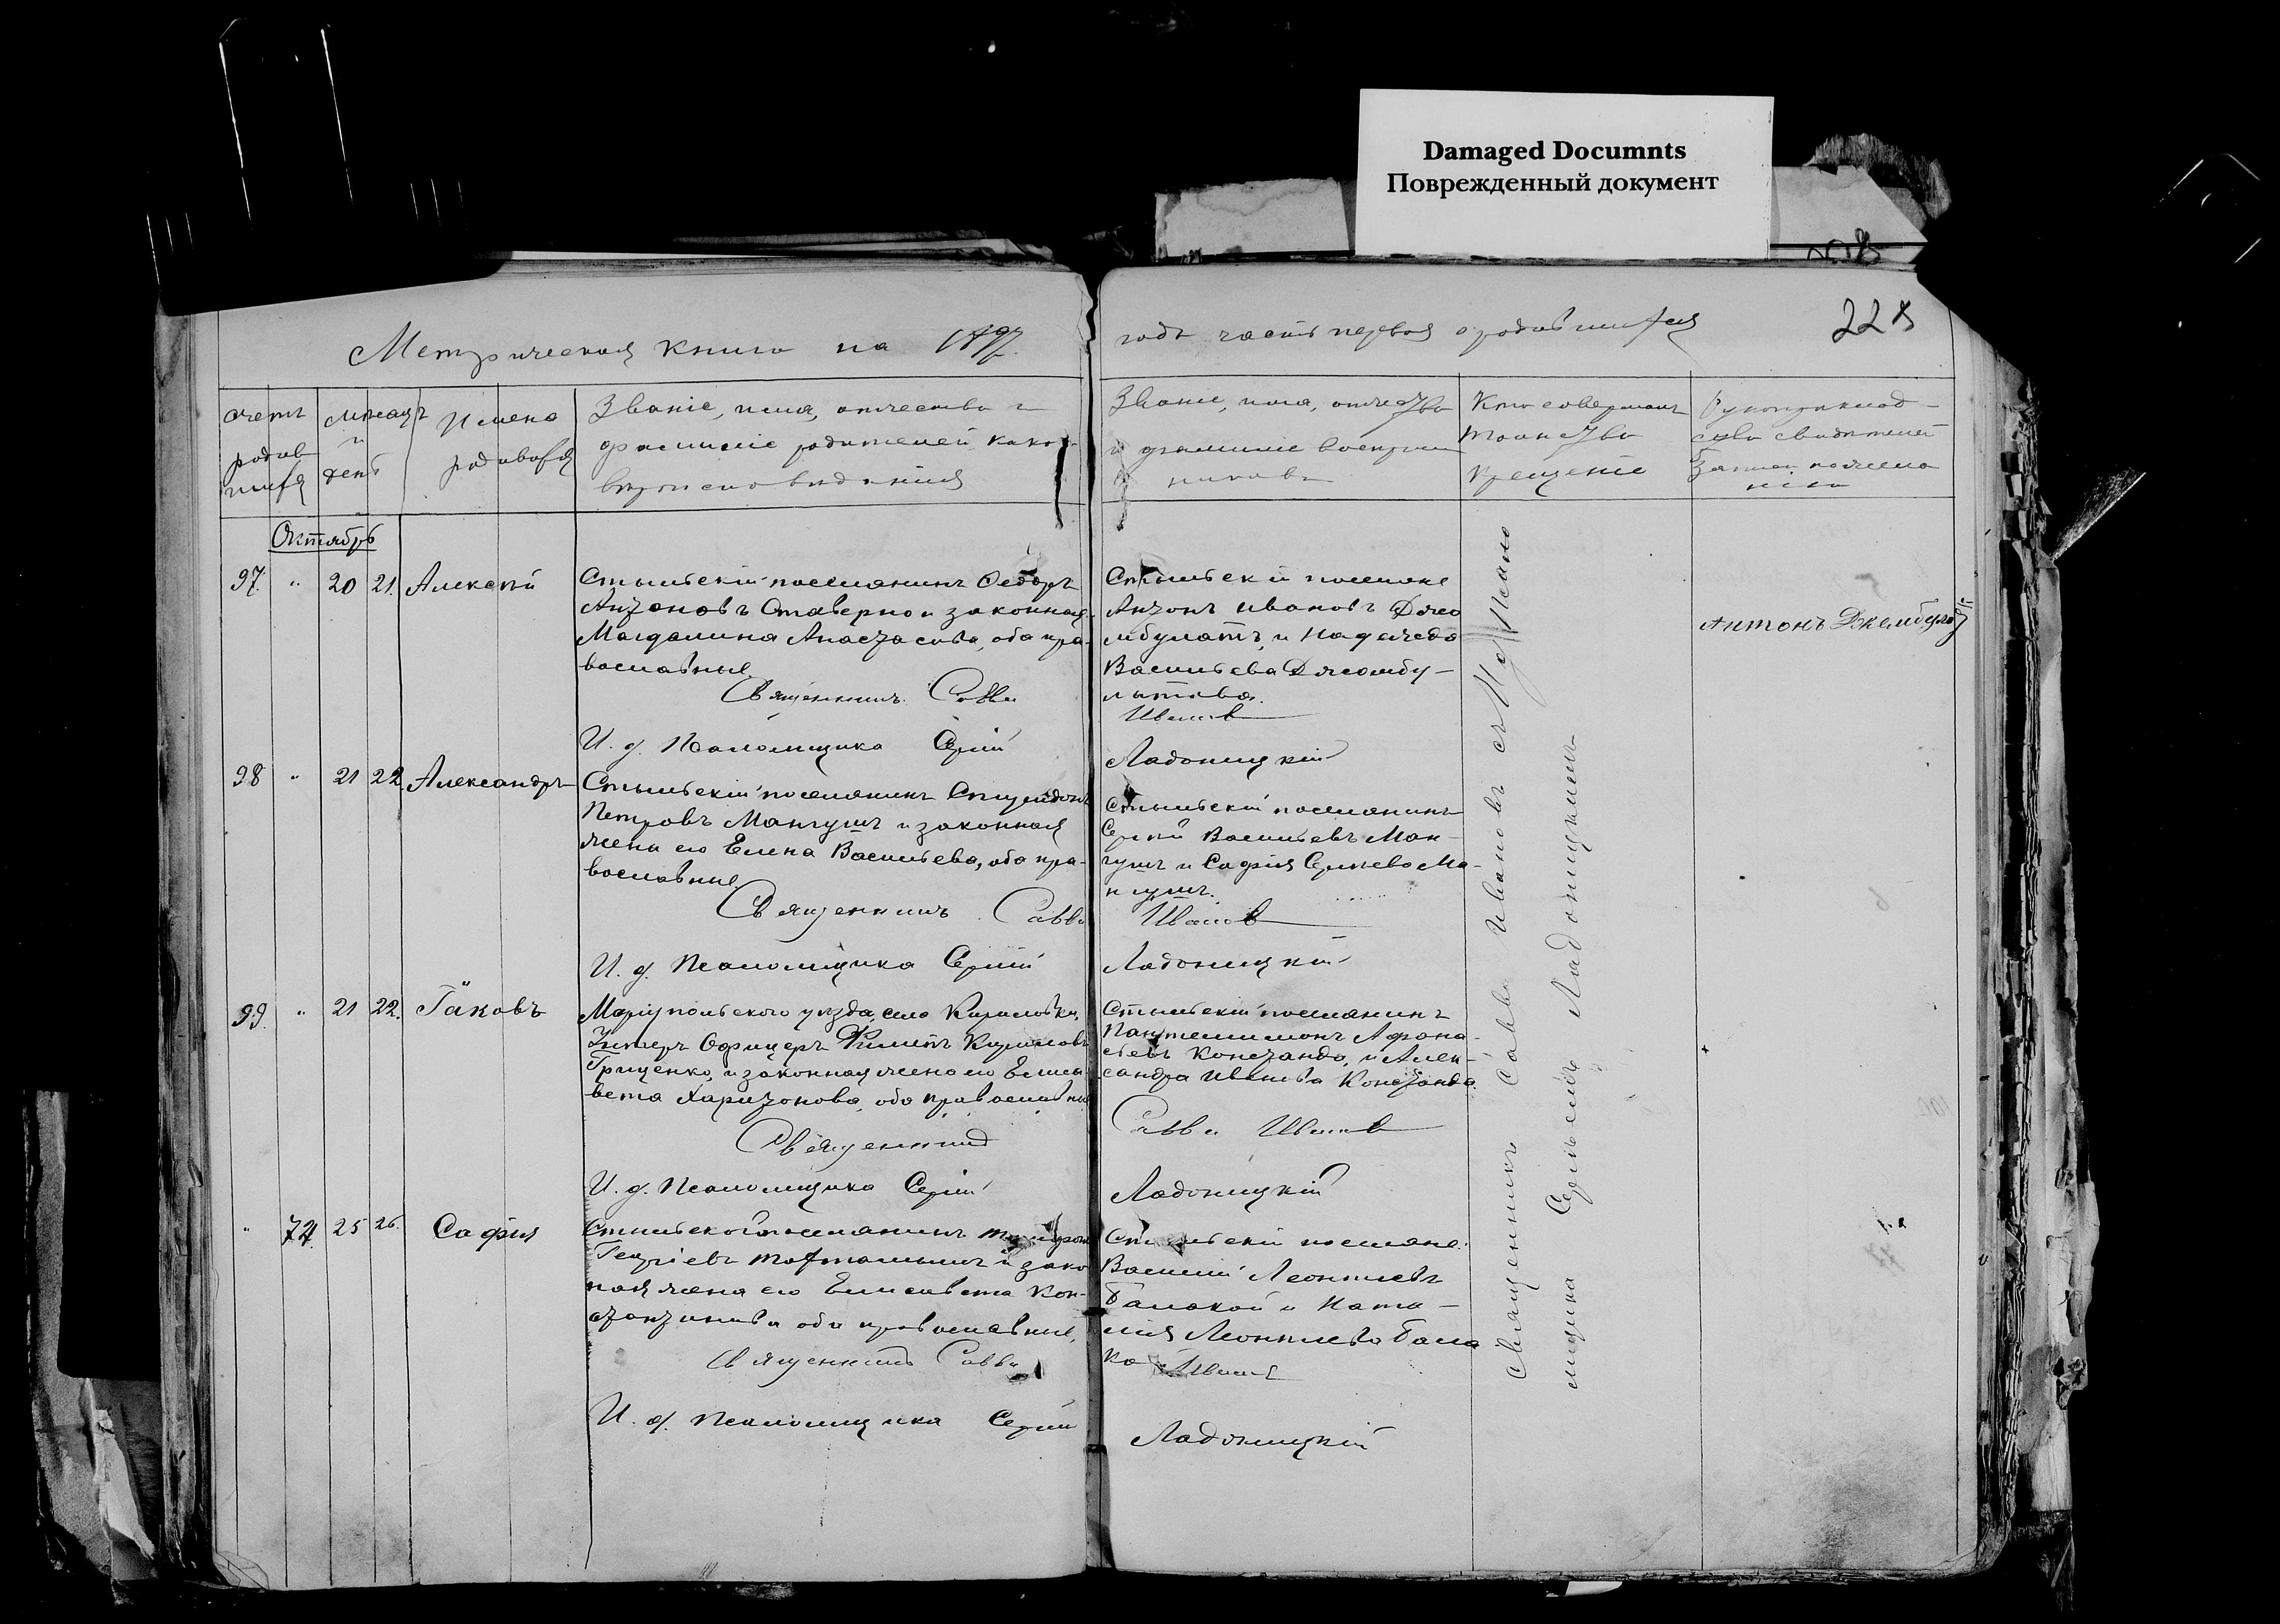 Damaged Documnts
Поврежденный документ
228
Метрическая книга на 1897
годъ часть первая о родившихся
Счетъ родив шихся
Мѣсяцъ и день
Имена родившихся
Званіе, имя, отчество и
фамиліе родителей какого
вѣроисповѣданія
Званіе, имя, отчество
и фамиліе воспріем
никовъ
Кто совершалъ
таинство
крещенія
Рукоприклад-
ство свидѣтелей
записи по жела
нію
Октябрь
97. " 20 21. Алексѣй
Стыльскій поселянинъ Ѳеодоръ
Антоновъ Ставерно и законная
Магдалина Анастасова, оба пра-
вославные.
Священникъ Савва
И. д. Псаломщика Сергій
Стыльскіи поселяне
Антонъ Ивановъ Джа
мбулатъ, и Надежда
Васильева Джамбу-
латова.
Ивановъ
Ладоницкій
Антонъ Джамбулат
98 " 21 22. Александръ
Стыльскій поселянинъ Спиридонъ
Петровъ Мангушъ и законная
жена его Елена Васильева, оба пра-
вославные.
Священникъ Савва
И. д. Псаломщика Сергій
Стыльскій поселянинъ
Сергій Васильевъ Ман-
гушъ и Софія Сергѣева Ма-
нгушъ.
Ивановъ
Ладоницкій
99. " 21 22. Іаковъ
Маріупольского уѣзда, село Кириловки,
Унтеръ Офицеръ Филипъ Кириловъ
Гриценко, и законная жена его Елиса
вета Харитонова, оба православные
Священникъ
И. д. Псаломщика Сергій
Стыльскій поселянинъ
Пантелиимонъ Афана-
сьевъ Констанда, и Алек-
сандра Иванова Констанда.
Савва Ивановъ
Ладоницкій
" 74. 25 26. Софія
Стыльской поселянинъ
Георгіевъ Тохтамышъ и зако
ная жена его Елисавета Кон-
стантинова оба православные,
Священникъ Савва
И. д. Псаломщика Сергій
Стыльскіи поселяне:
Василій Леонтіевъ
Балакой и Ната-
лія Леонтіева Бала
ко
Ивановъ
Ладоницкій
Священникъ Савва Ивановъ съ И. д. Псало
мщика Сергѣемъ Ладоницкимъ